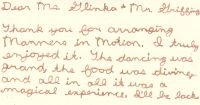 Dear Ms. Glinka & Mr. Griffin
Thank you for arranging
Manners in Motion. I truly
enjoyed it. The dancing was
grand, the food was divine,
and all in all it was a
magical experience. I'll be back